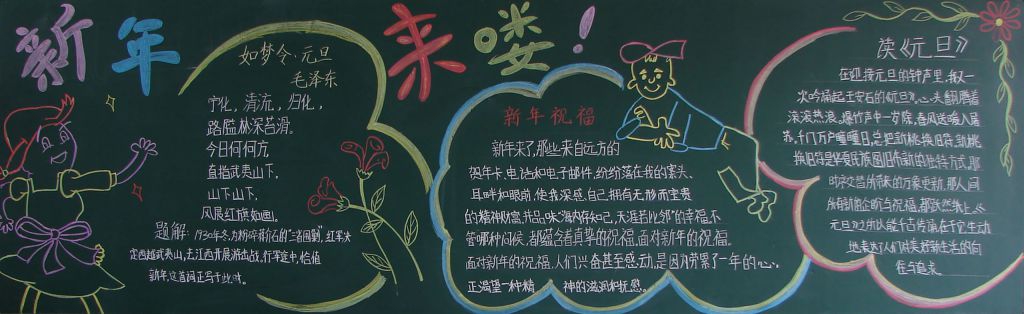 新年来喽！
如梦令·元旦
毛泽东
宁化，清流，归化，
路隘林深苔滑。
今日何何方，
直指武夷山下。
山下山下，
风展红旗如画。
题解：1930年冬，为粉碎蒋介石的“三路围剿”，红军决
定西越武夷山，去江西开展游击战，行军途中，恰值
新年，这首词正写于此时。
新年祝福
新年来了，那些来自远方的
贺年卡、电话和电子邮件，纷纷落在我的案头、
耳畔和眼前，使我深感自己拥有无形而宝贵
的精神财富，并品味“海内存知己，天涯若比邻”的幸福。不
管哪种问候，都蕴含着真挚的祝福。面对新年的祝福。
面对新年的祝福，人们兴奋甚至感动，是因为劳累了一年的心，
正渴望一种精 神的滋润和抚慰。
读《元旦》
在迎接元旦的钟声里，我一
次吟诵起王安石的《元旦》，心头翻腾着
滚滚热浪。爆竹声中一岁除，春风送暖入屠
苏，千门万户曈曈日，总把新桃换旧符。新桃
换旧符是华夏民族图旧布新的独特方式，那
时序交替所带来的万象更新，那人间
所有新的企盼与祝福，都跃然纸上。
元旦之所以能千古传诵在于它生动
地表达了人们对美好新生活的向
往与追求